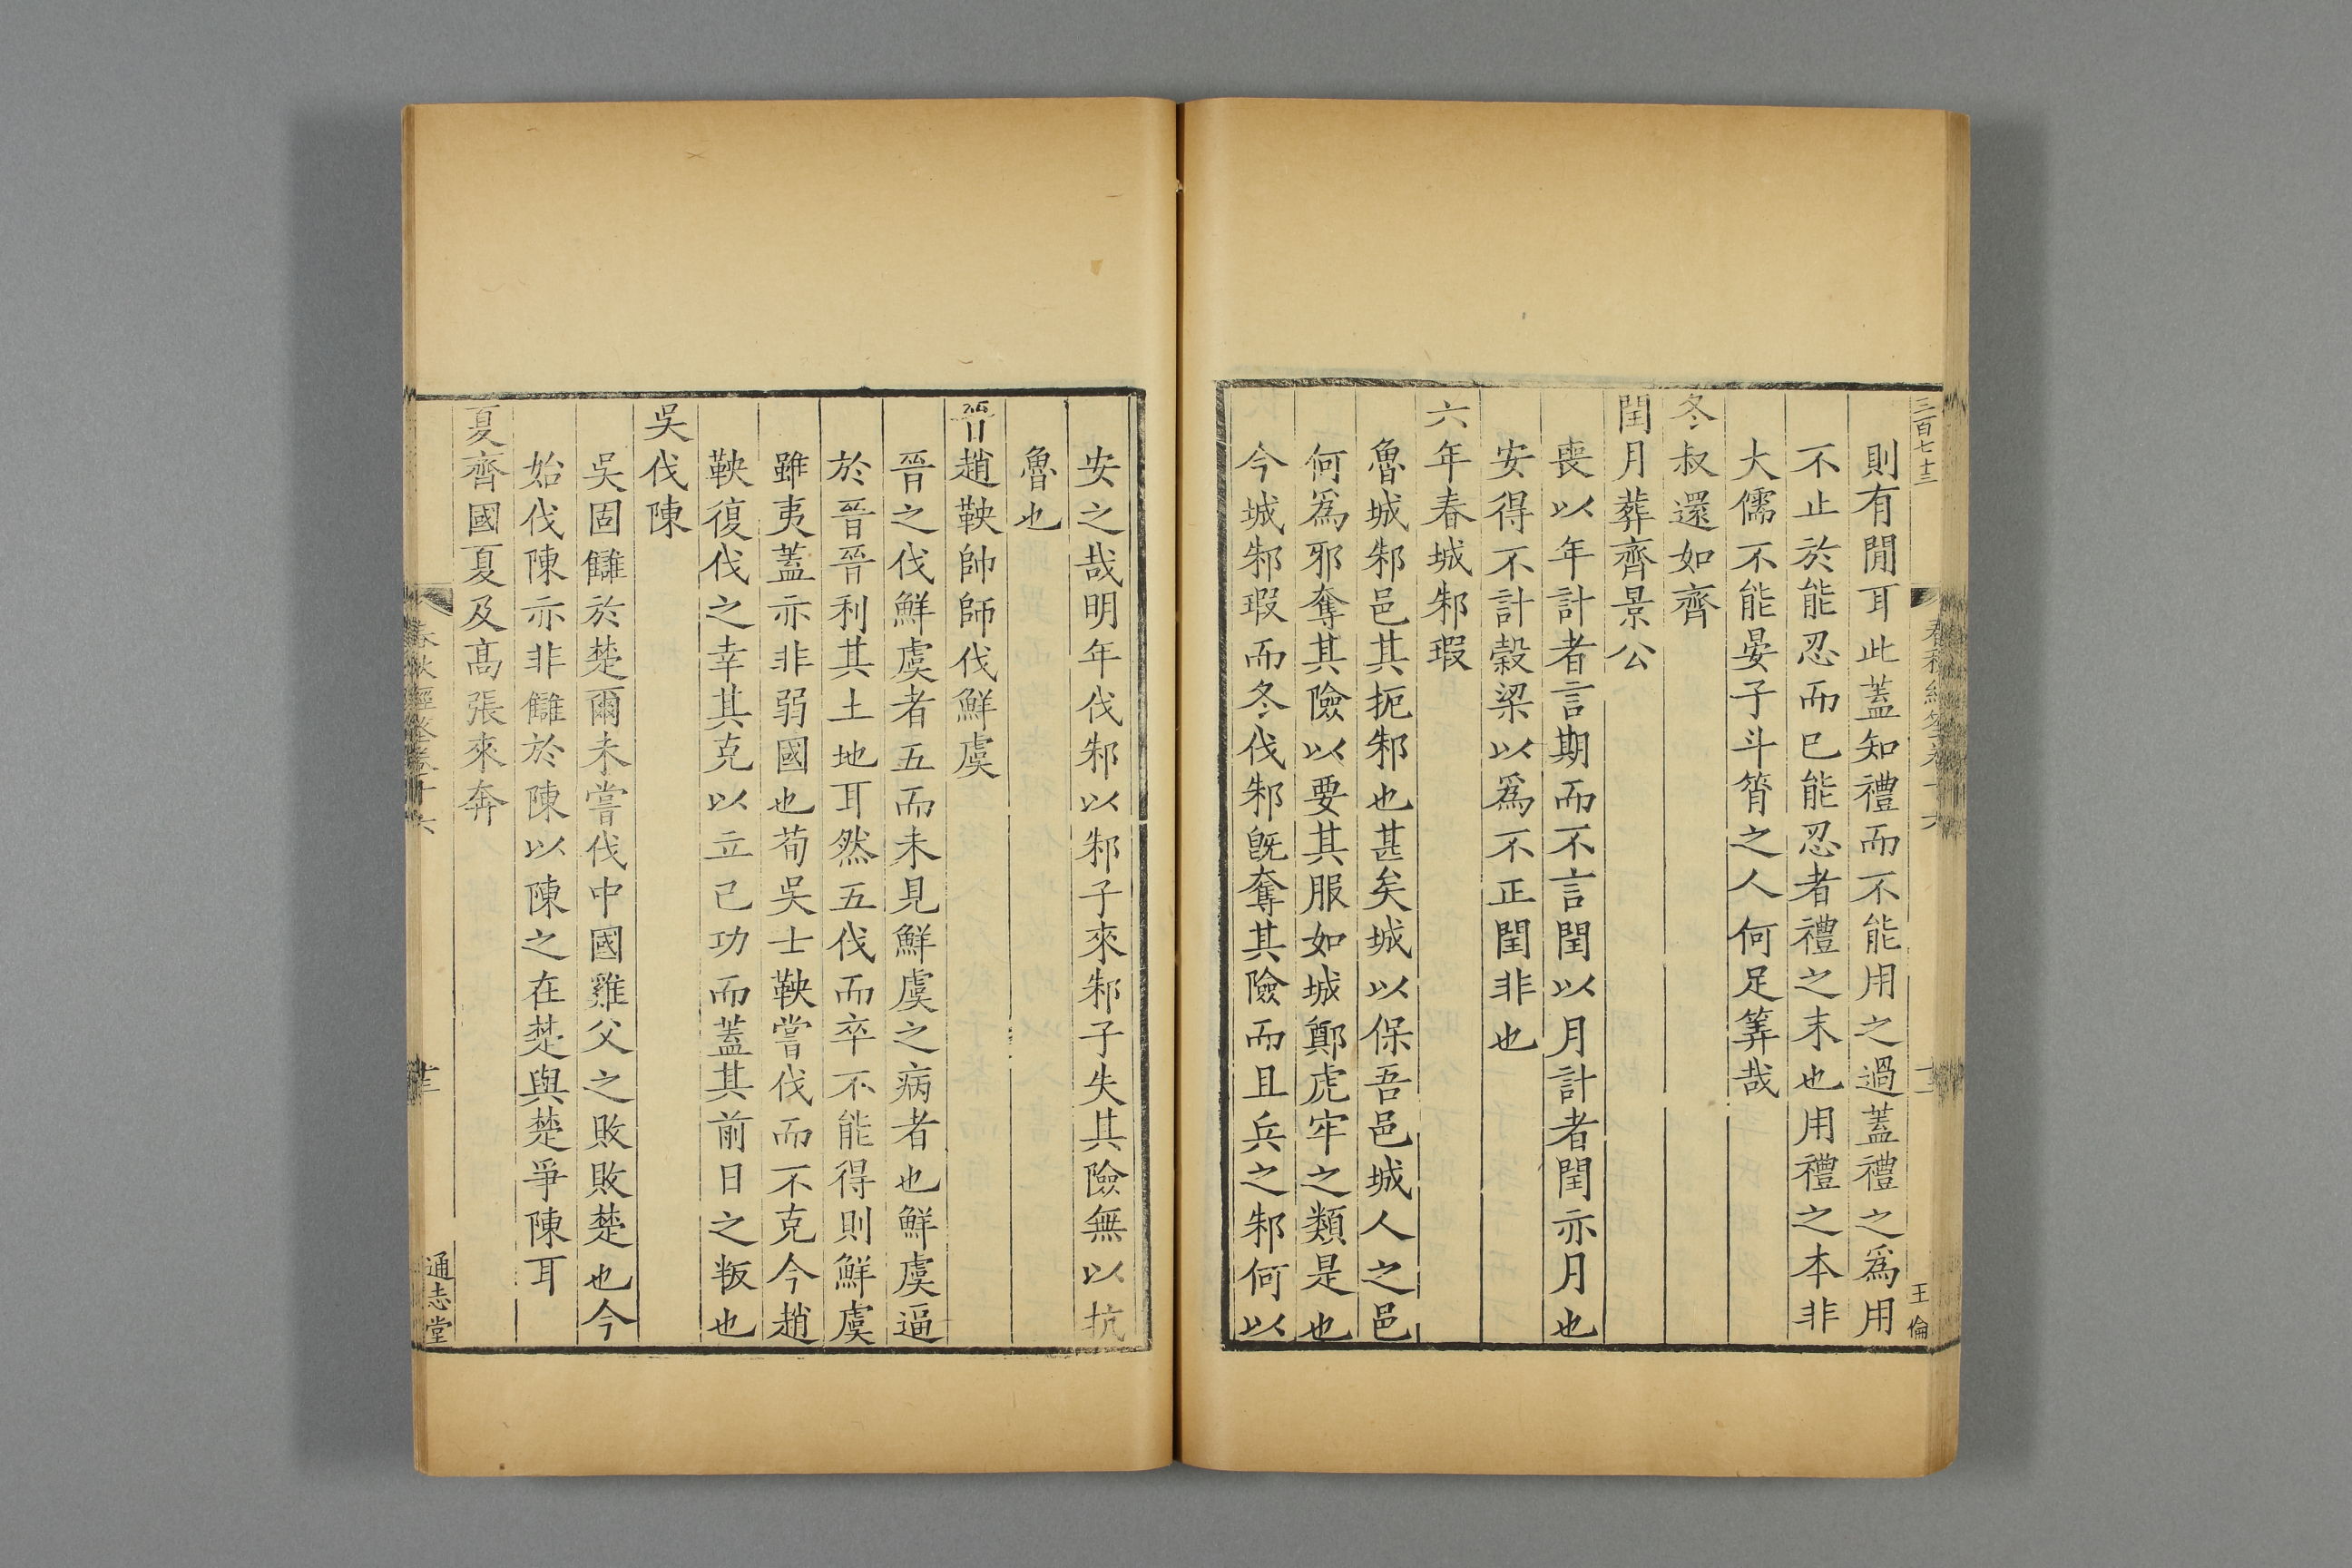 三百七十三
春秋經筌卷十六
十二
王倫
則有閒耳此蓋知禮而不能用之過蓋禮之爲用
不止於能忍而已能忍者禮之末也用禮之本非
大儒不能晏子斗筲之人何足筭哉
冬叔還如齊
閏月葬齊景公
喪以年計者言期而不言閏以月計者閏亦月也
安得不計穀梁以爲不正閏非也
六年春城邾瑕
魯城邾邑其扼邾也甚矣城以保吾邑城人之邑
何爲邪奪其險以要其服如城鄭虎牢之類是也
今城邾瑕而冬伐邾旣奪其險而且兵之邾何以
安之哉明年伐邾以邾子來邾子失其險無以抗
魯也
晉趙鞅帥師伐鮮虞
晉之伐鮮虞者五而未見鮮虞之病者也鮮虞逼
於晉晉利其土地耳然五伐而卒不能得則鮮虞
雖夷蓋亦非弱國也荀吳士鞅嘗伐而不克今趙
鞅復伐之幸其克以立己功而蓋其前日之叛也
吳伐陳
吳固讎於楚爾未嘗伐中國雞父之敗敗楚也今
始伐陳亦非讎於陳以陳之在楚與楚爭陳耳
夏齊國夏及髙張來奔
春秋經筌卷十六
十三
通志堂